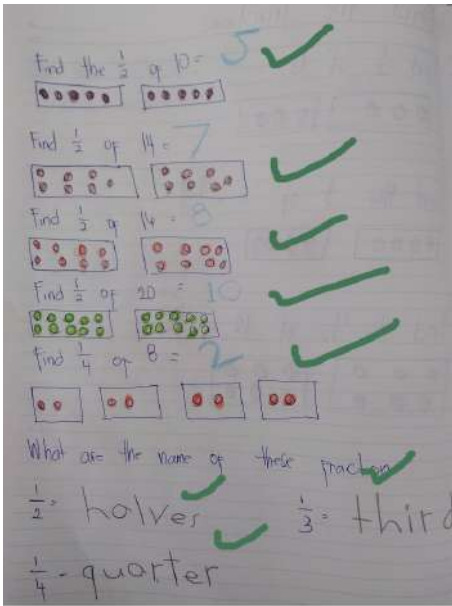 Find the 1/2 of 10 = 5
Find 1/2 of 14 = 7
Find 1/2 of 14 = 8
Find 1/2 of 20 = 10
Find 1/4 of 8 = 2
What are the name of these fraction
1/2 = halves 1/3 = third
1/4 - quarter